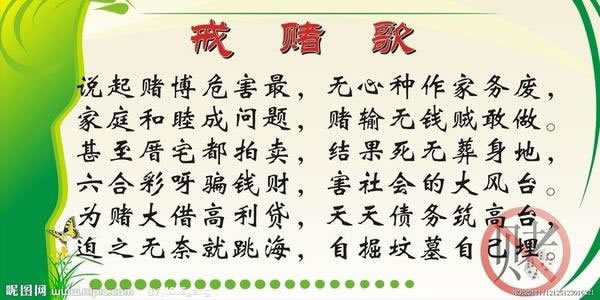 戒 赌 歌
说起赌博危害最，无心种作家务废，
家庭和睦成问题，赌输无钱贼敢做。
甚至厝宅都拍卖，结果死无葬身地，
六合彩呀骗钱财，害社会的大风台。
为赌大借高利贷，天天债务筑高台，
迫之无奈就跳海，自掘坟墓自己埋。
赌
昵图网